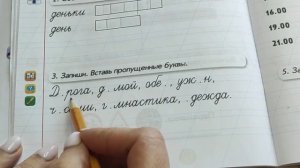 деньки
день
16.00
21.00
3. Запиши. Вставь пропущенные буквы.
Д . рога, д . мой, обе . , уж . н,
г . мнастика, . дежда.
5. За